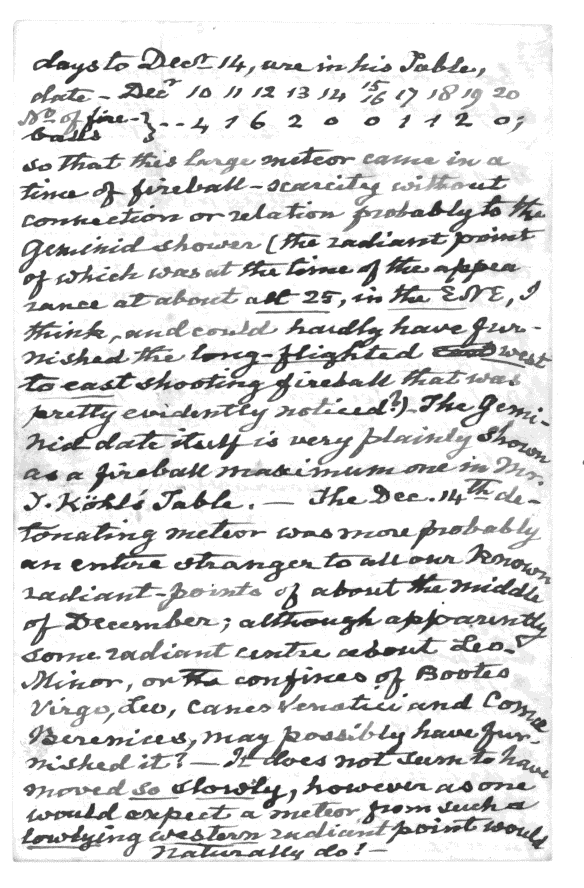 days to Decr 14, are in his Table,
date - Decr 10 11 12 13 14 15/16 17 18 19 20
No. of fire-balls } -- 4 1 6 2 0 0 1 1 2 0;
so that this large meteor came in a
time of fireball-scarcity without
connection or relation probably to the
Geminid shower (the radiant point
of which was at the time of the appea
rance at about alt 25, in the ENE, I
think, and could hardly have fur-
nished the long-flighted east west
to east shooting fireball that was
pretty evidently noticed?)- The Gemi-
nid date itself is very plainly shown
as a fireball maximum one in Mr.
T. Köhl's Table. — The Dec. 14th de-
tonating meteor was more probably
an entire stranger to all our known
radiant-points of about the middle
of December; although apparently
some radiant centre about Leo-
Minor, or the confines of Bootes
Virgo, Leo, Canes Venatici and Coma
Berenices, may possibly have fur-
nished it? — It does not seem to have
moved so slowly, however as one
would expect a meteor from such a
lowlying western radiant point would
naturally do! —